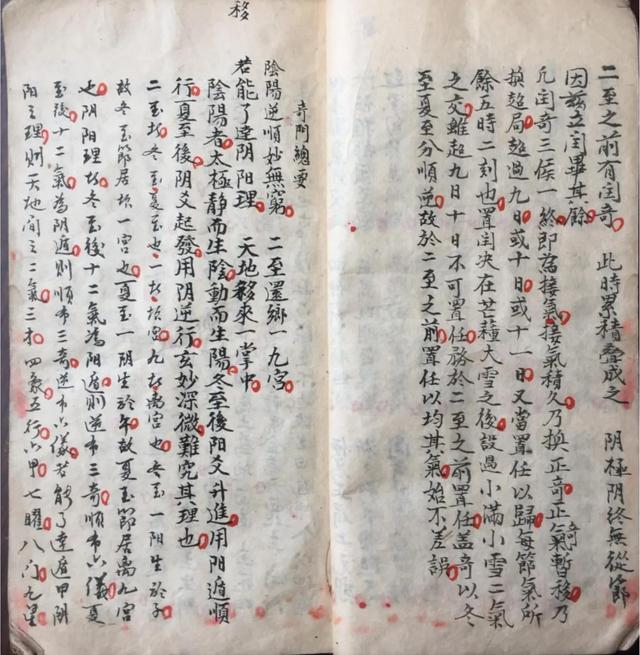 二至之前有閏奇　此時累積叠成之　阴極阴終無從節
因兹立閏畢其餘
凡閏奇三候一終即為接氣接氣積久乃換正奇正氣暫移乃
換超局超過九日或十日或十一日又當置任以歸每節氣所
餘五時二刻也置閏决在芒種大雪之後設過小滿小雪二氣
之交雖超九日十日不可置任務於二至之前置任盖奇以冬
至夏至分順逆故於二至之前置任以均其氣始不差誤
移
奇門總要
陰陽逆順妙無窮　二至還鄉一九宮
若能了達阴阳理　天地移來一掌中
陰陽者太極静而生陰動而生陽冬至後阳爻升進用阳遁順
行夏至後阴爻起發用阴逆行玄妙深微難究其理也
二至者冬至夏至也一者坎宮九者离宮也冬至一阳生於子
故冬至節居坎一宮也夏至一阴生於午故夏至節居离九宮
也阴阳理者冬至後十二氣為阳遁則逆布三奇順布六儀夏
至後十二氣為阴遁則順布三奇逆布六儀若能了達遁甲阴
阳之理則天地间之二氣三才四象五行六甲七曜八门九星